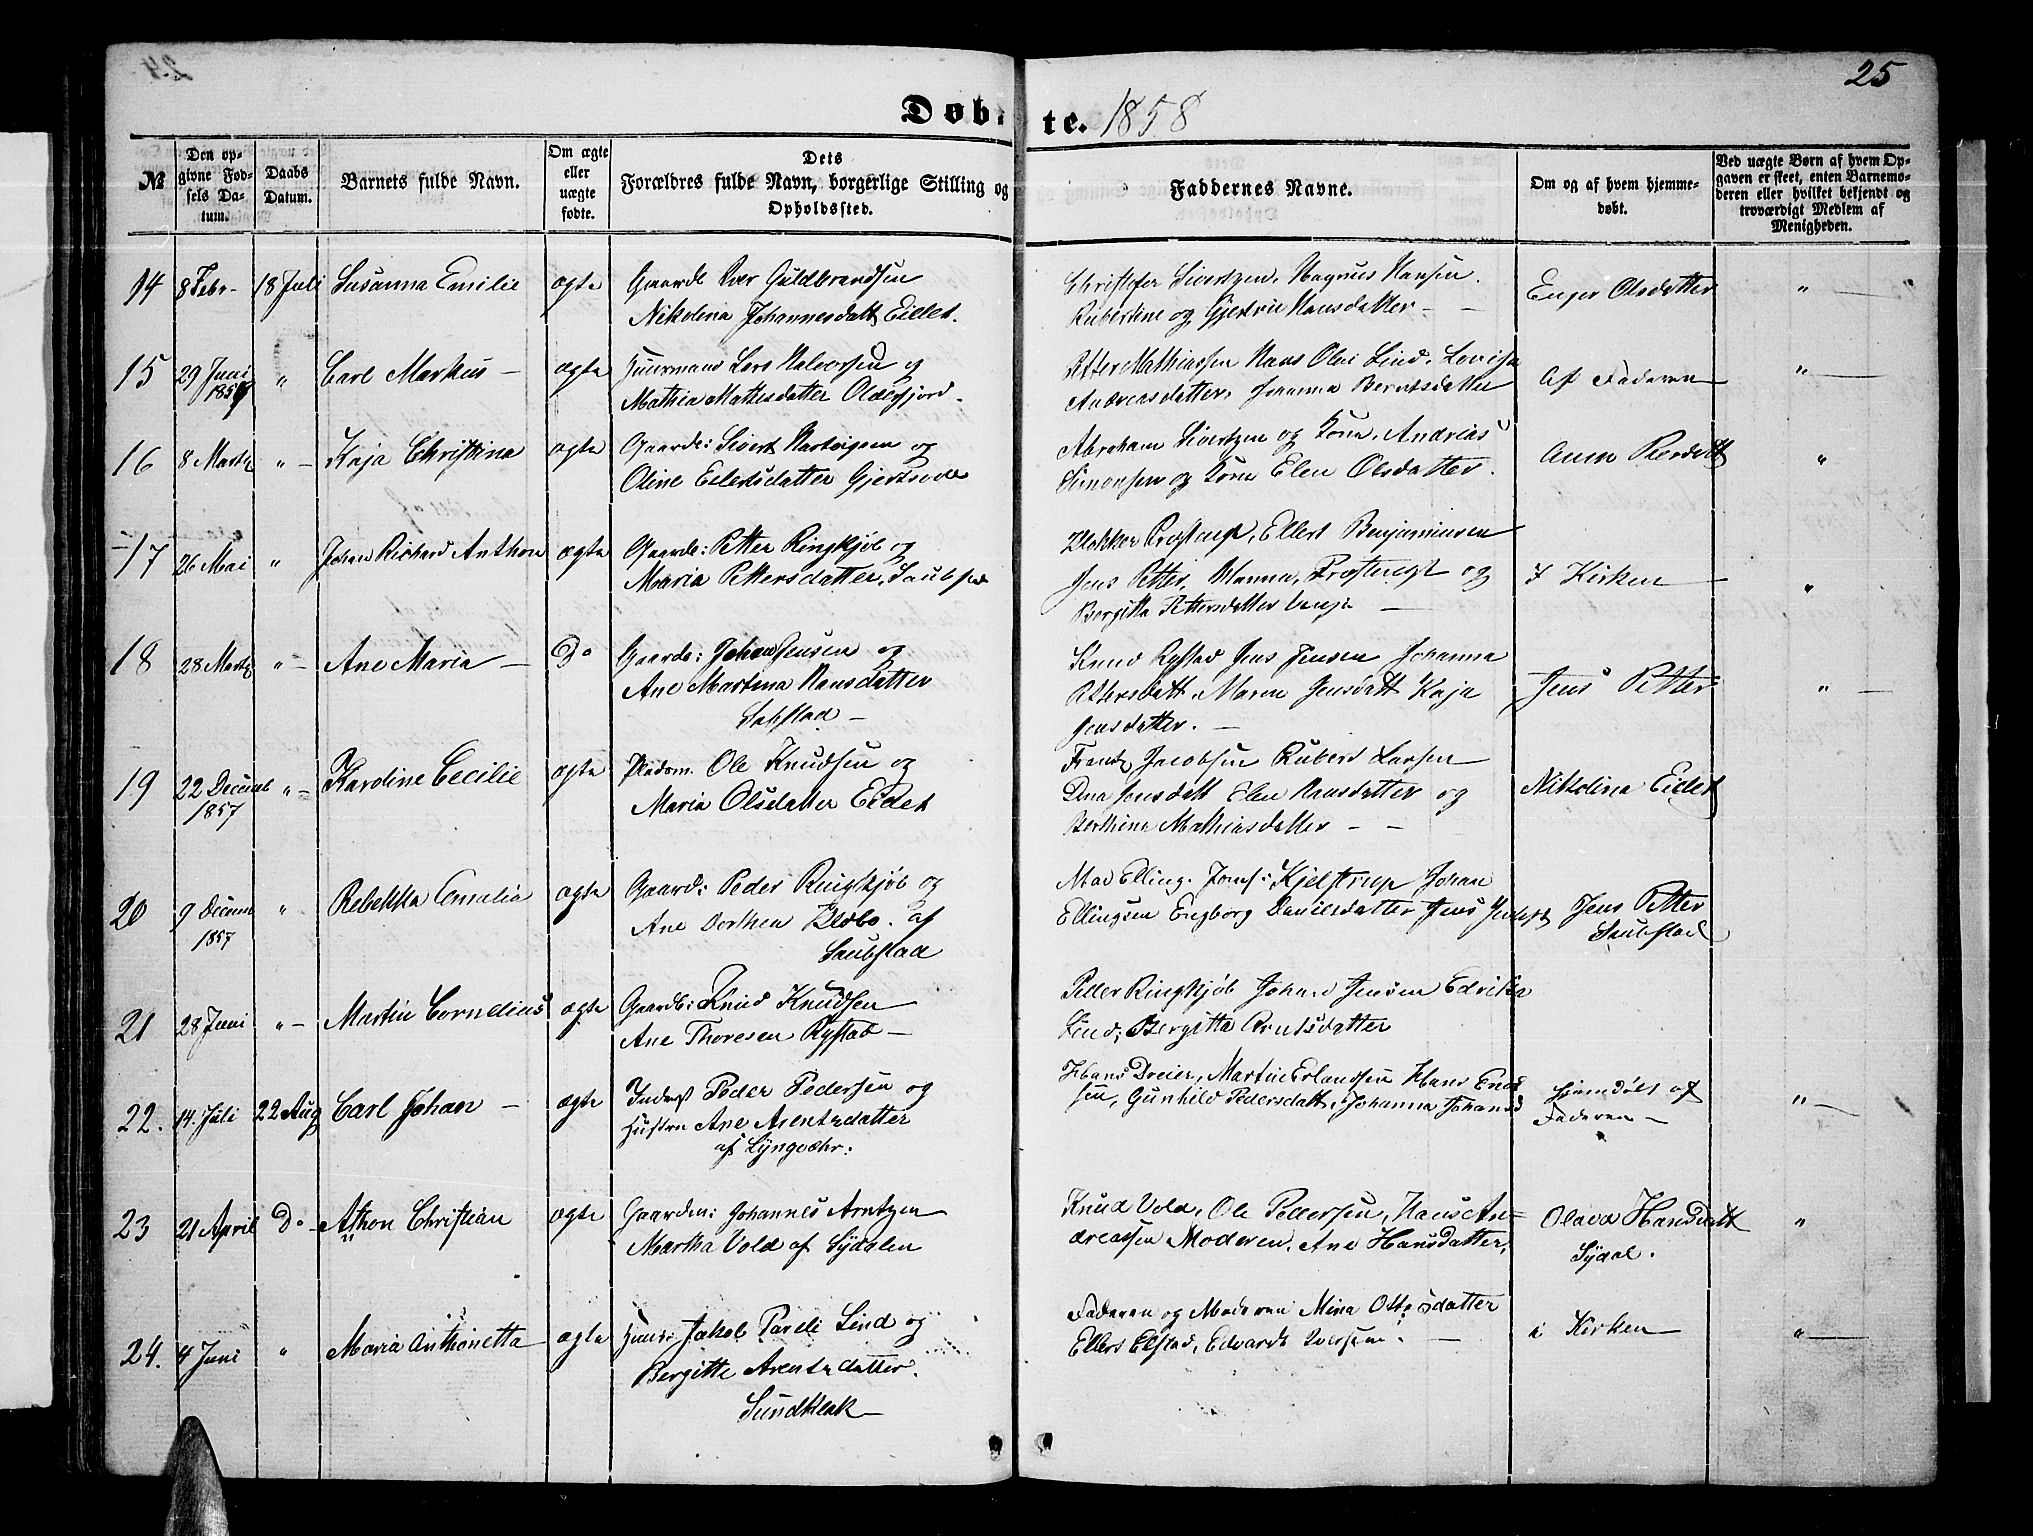 25
Døbte. 1858
№
Den opgivne Fødsels Datum.
Daabs Datum.
Barnets fulde Navn.
Om ægte eller uægte fødte.
Dets Forældres fulde Navn, borgerlige Stilling og Opholdssted.
Faddernes Navne.
Om og af hvem hjemmedøbt.
Ved uægte Børn af hvem Opgaven er skeet, enten Barnemoderen eller hvilket bekjendt og troværdigt Medlem af Menigheden.
14 8 Febr- 18 Juli Susanna Emilie ægte Gaardb Iver Guldbrandsen
Nikolina Johannesdatt Eidet.
Christofer Sivertzen, Magnus Hansen.
Rubertine og Gjertrie Hansdatter - -
Enger Olsdatter "
15 29 Juni 1857 " Carl Markus - ægte Huusmand Lars Halvorsen og
Mathia Mathisdatter Olderfjord.
Petter Mathiassen Hans Olai Lind, Lovisa
Andreasdatter, Johanna Berntsdatter
Af Faderen "
16 8 Martz " - Kaja Christina ægte Gaardb: Sivert Hartvigsen og
Oline Eilertsdatter Gjertsvold
Abraham Sivertzen og Kone, Andrias
Simonsen og Kone Elen Olsdatter.
Anne Persdatt "
17 26 Mai " Johan Richard Anthon ægte Gaardb: Petter Ringkjøb og
Maria Pettersdatter, Saubst
Klokker Prøstrup, Ellert Benjaminsen
Jens Petter, Hanna Prøstrup og
Bergitta Pettersdatter -
I Kirken "
18 28 Martz " - Ane Maria - Do Gaardb: Johan Jensen og
Ane Martina Hansdatter
Sapstad -
Knud Rystad Jens Jensen Johanna
Pettersdatt, Maren Jensdatt Kaja
Jensdatter. -
Jens Petter "
19 22 Decemb 1857 " - Karoline Cecilie ægte Pladsm. Ole Knudsen og
Maria Olsdatter Eidet
Frantz Jacobsen Rubert Larsen
Dina Jensdatt Elen Hansdatter og
Berthine Mathiasdatter - -
Nikkolina Eidet
20 9 Decem 1857 " Rebekka Amalia ægte Gaardb: Peder Ringkjøb og
Ane Dorthea Klæbo. af
Saubstad
Mad Elling. Jomf: Kjelstrup Johan
Ellingsen Engborg Danielsdatter Jens
Jens Petter
Saubstad
21 28 Juni " - Martin Cornelius ægte Gaardb: Knud Knudsen
Ane Thoresen Rystad -
Petter Ringkjøb Johan Jensen Edvika
Lind, Bergitta Arntsdatter
22. 14. Juli 22 Aug Carl Johan - ægte Inderst Peder Pedersen og
Hustru Ane Arentzdatter
af Lyngvær.
Hans Dreier, Martin Erlandsen Hans
sen, Gunhild Pedersdatt, Johanna Johansd
Hjemdøbt af
Faderen -
"
23 21 April Do - Athon Christian ægte Gaarden: Johannes Arntzen
Martha Vold af Sydalen
Knud Vold, Ole Pedersen, Hans An-
dreassen Moderen, Ane Hansdatter,
Olava Hansdatt
Sydal.
"
24. 4 Juni " Maria Anthonetta ægte Huusm: Jakob Pareli Lind og
Bergitte Arentzdatter.
Sundklak -
Faderen og Moderen Mina Ottosdatter
Ellert Elstad, Edvardt Iversen. -
i Kirken - "